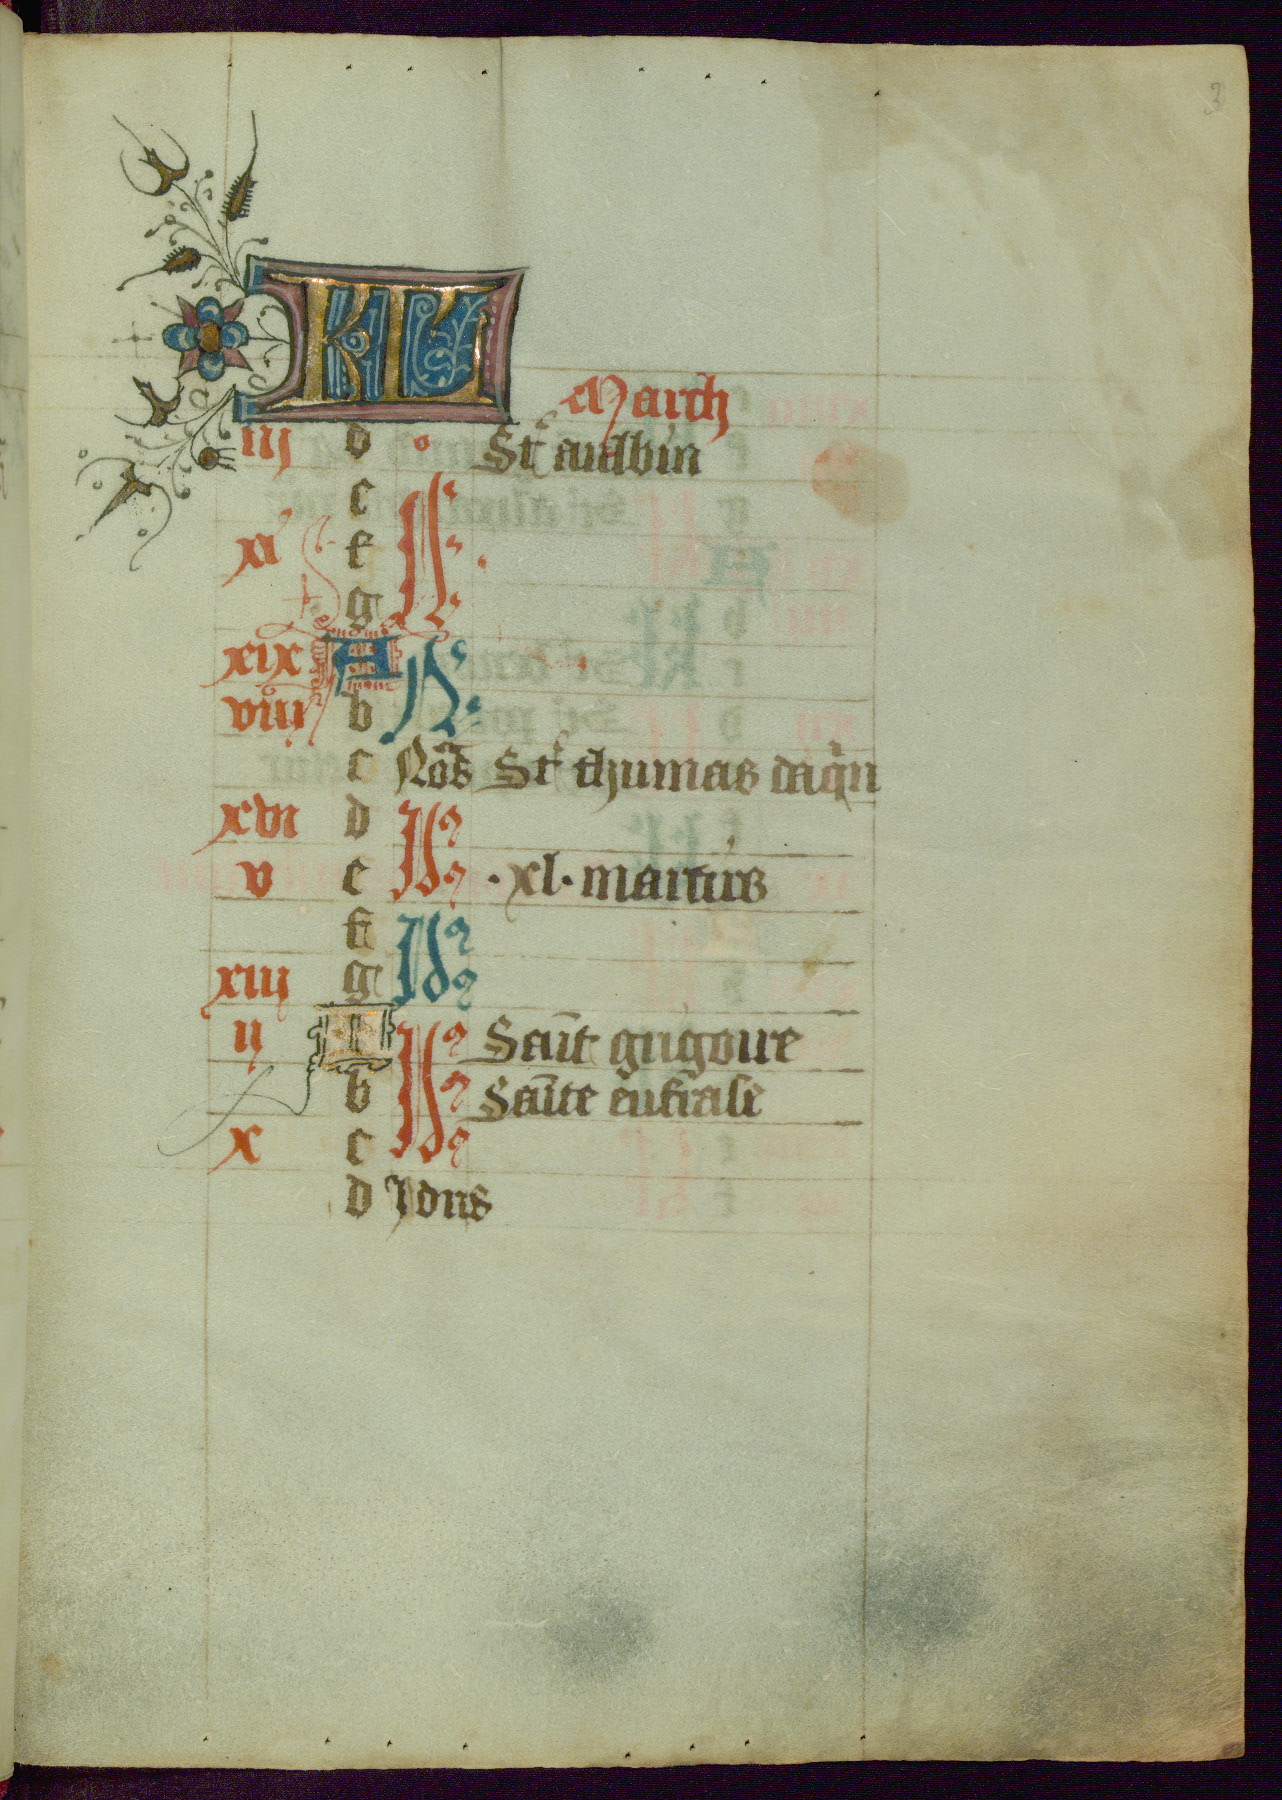 3
KL
March
iij d o St aulbin
e N
xi f
g
xix A N
viii b
c Noˉs St thumas daq̃in
xvi d N
v e . xl . martirs
f Id
xiij g
ij A Id Sait grigoire
b Saīte eufrase
x c
d Idus